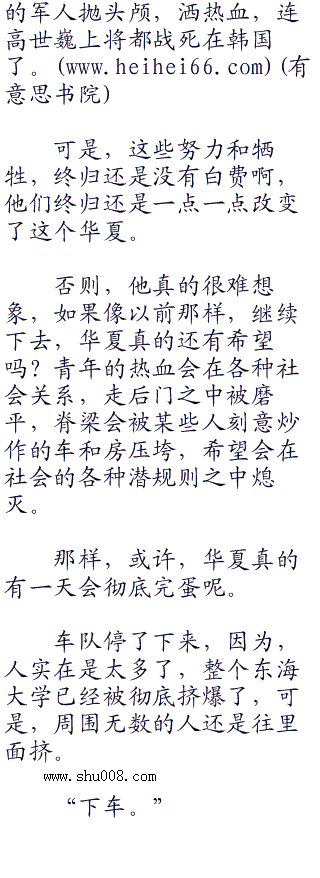 的军人抛头颅，洒热血，连
高世巍上将都战死在韩国
了。(www.heihei66.com)(有
意思书院)
可是，这些努力和牺
牲，终归还是没有白费啊，
他们终归还是一点一点改变
了这个华夏。
否则，他真的很难想
象，如果像以前那样，继续
下去，华夏真的还有希望
吗？青年的热血会在各种社
会关系，走后门之中被磨
平，脊梁会被某些人刻意炒
作的车和房压垮，希望会在
社会的各种潜规则之中熄
灭。
那样，或许，华夏真的
有一天会彻底完蛋呢。
车队停了下来，因为，
人实在是太多了，整个东海
大学已经被彻底挤爆了，可
是，周围无数的人还是往里
面挤。
www.shu008.com
“下车。”